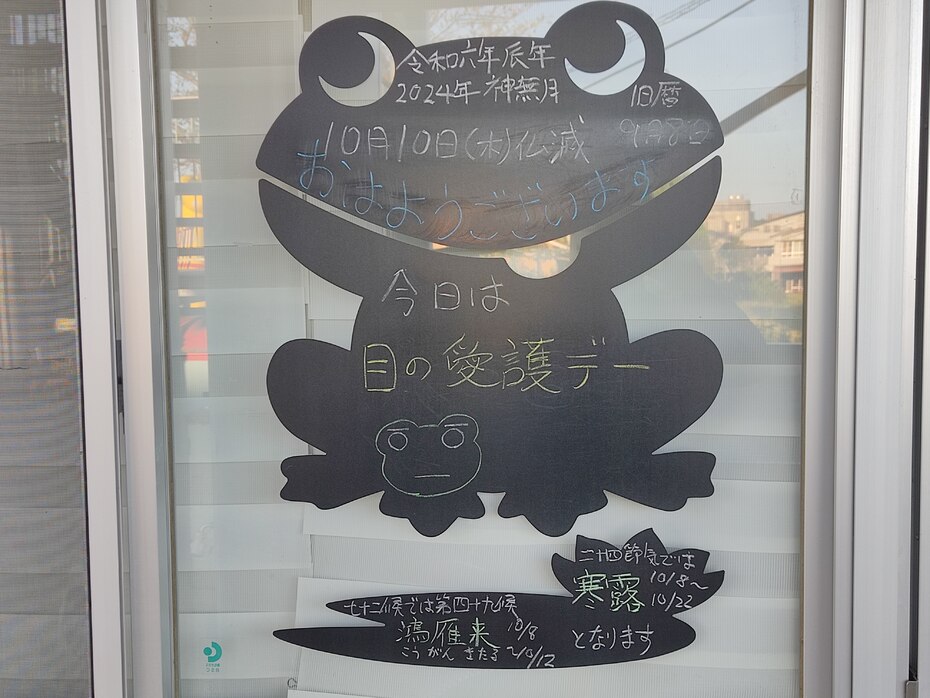 令和六年辰年
2024年 神無月
旧暦
9月8日
10月10日(木)仏滅
おはようございます
今日は
目の愛護デー
二十四節気では
寒露 10/8〜
10/22
となります
七十二候では第四十九候
鴻雁来 10/8
こうがんきたる 〜10/12